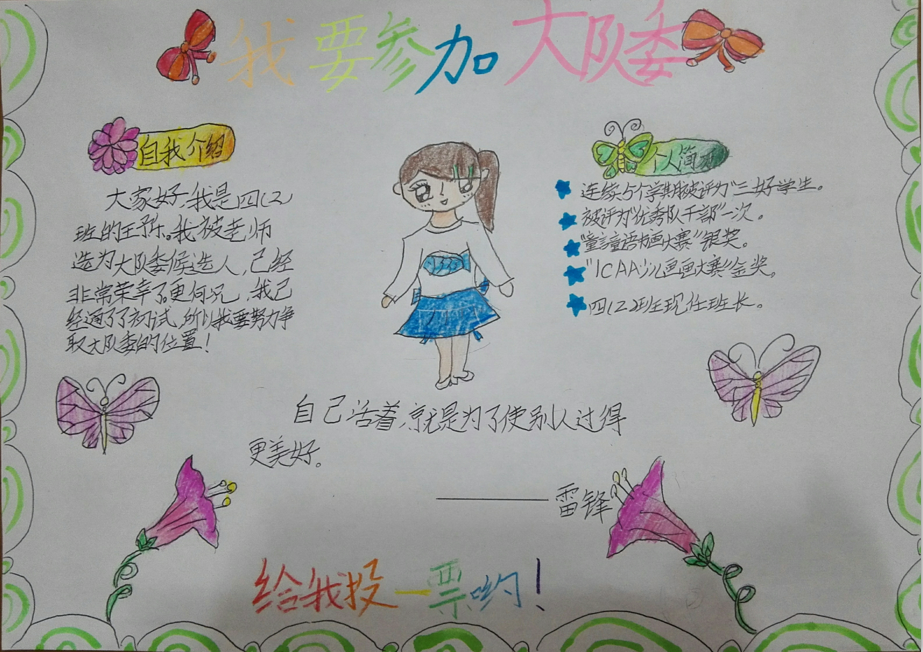 我要参加大队委
自我介绍
大家好,我是四(2)
班的王予乐。我被老师
选为大队委候选人,已经
非常荣幸了。更何况,我已
经通过了初试,所以我要努力争
取大队委的位置!
个人简历
连续5个学期被评为“三好学生。
被评为“优秀队干部”一次。
“童言童语书画大赛”银奖。
“ICAA少儿画画大赛”金奖。
四(2)班现任班长。
自己活着,就是为了使别人过得
更美好。
——雷锋
给我投一票哟!